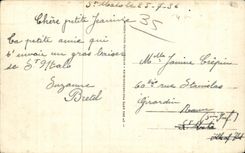 St Malo le 25-9-36
Chère petite Jeanine
35
Ta petite amie qui
t'envoie un gros baiser
de St Malo
Suzanne
Bretel
Melle Janine Crépin
60 bis rue Stanislas
Girardin
Rouen